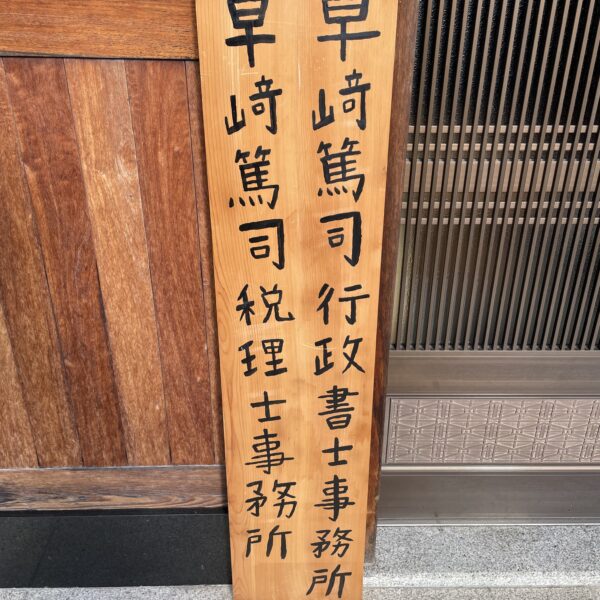 草﨑篤司行政書士事務所
草﨑篤司税理士事務所